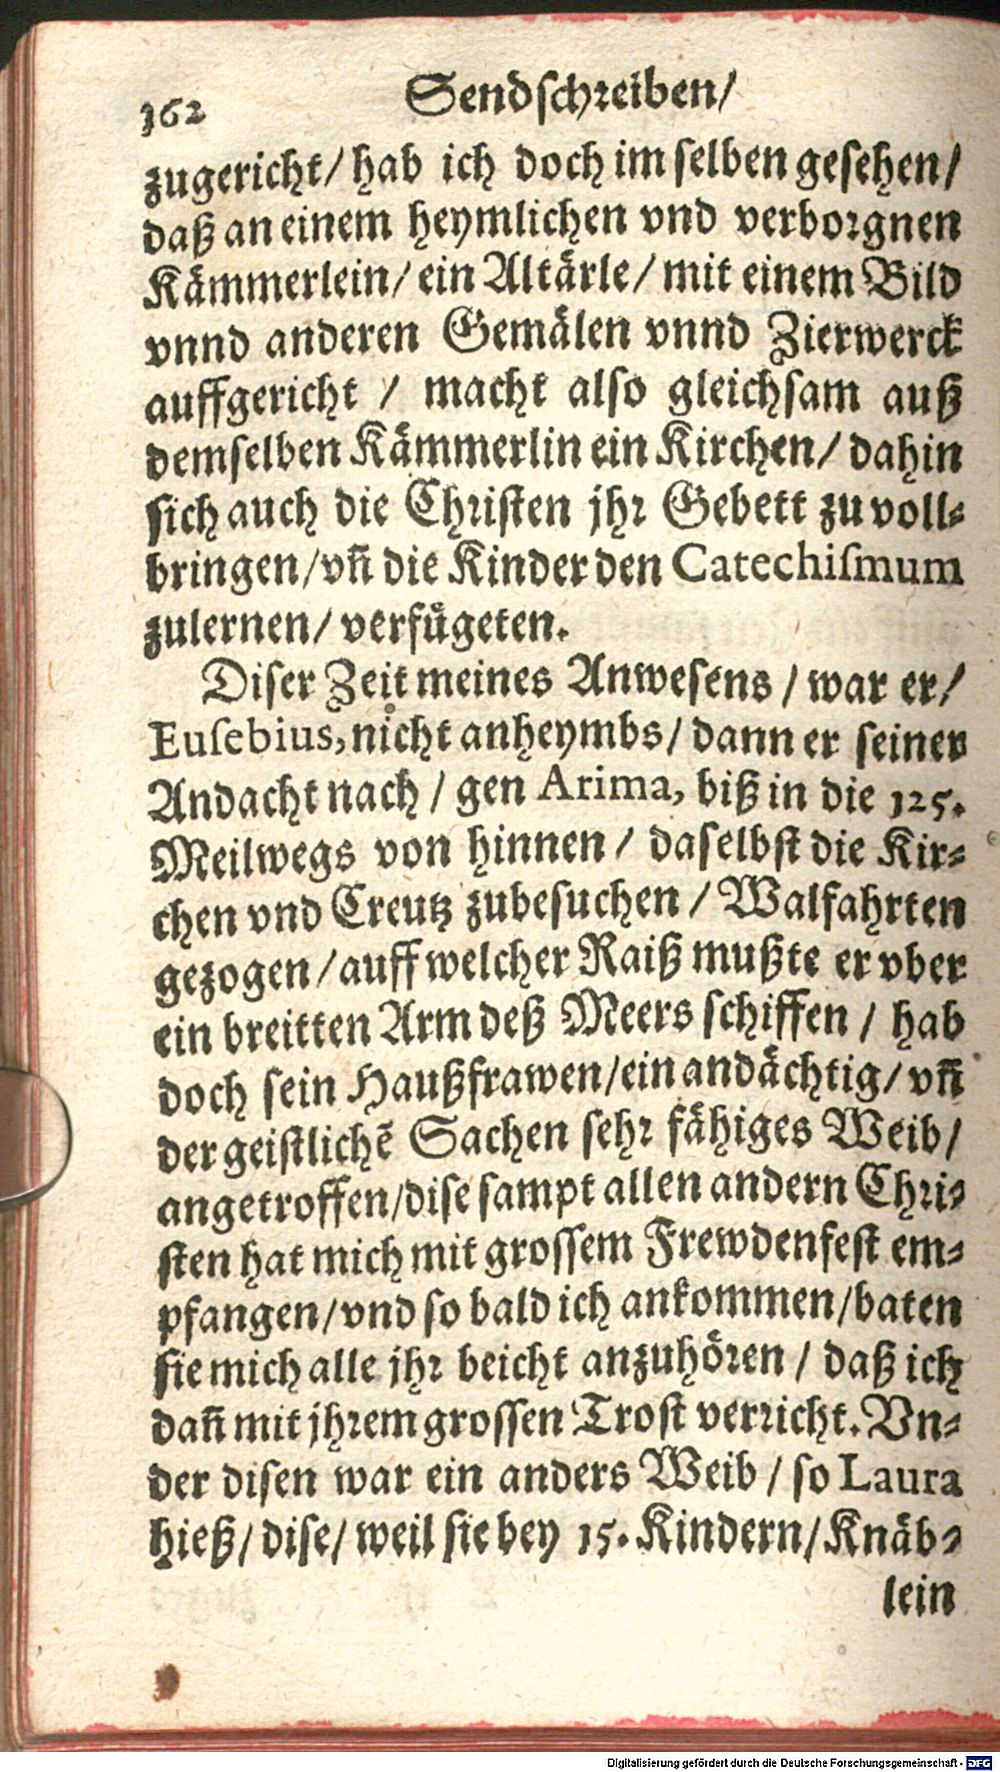 162 Sendschreiben/
zugericht/ hab ich doch im selben gesehen/
daß an einem heymlichen vnd verborgnen
Kämmerlein/ ein Altärle/ mit einem Bild
vnnd anderen Gemälen vnnd Zierwerck
auffgericht / macht also gleichsam auß
demselben Kämmerlin ein Kirchen/ dahin
sich auch die Christen jhr Gebett zu voll-
bringen/ vñ die Kinder den Catechismum
zulernen/ verfügeten.
Diser Zeit meines Anwesens / war er/
Eusebius, nicht anheymbs/ dann er seiner
Andacht nach / gen Arima, biß in die 125.
Meilwegs von hinnen / daselbst die Kir-
chen vnd Creutz zubesuchen / Walfahrten
gezogen/ auff welcher Raiß mußte er vber
ein breitten Arm deß Meers schiffen / hab
doch sein Haußfrawen/ ein andächtig/ vñ
der geistlichẽ Sachen sehr fähiges Weib/
angetroffen/ dise sampt allen andern Chri-
sten hat mich mit grossem Frewdenfest em-
pfangen/ vnd so bald ich ankommen/ baten
sie mich alle jhr beicht anzuhören / daß ich
dañ mit jhrem grossen Trost verricht. Vn-
der disen war ein anders Weib / so Laura
hieß/ dise/ weil sie bey 15. Kindern/ Knäb-
lein
Digitalisierung gefördert durch die Deutsche Forschungsgemeinschaft - DFG